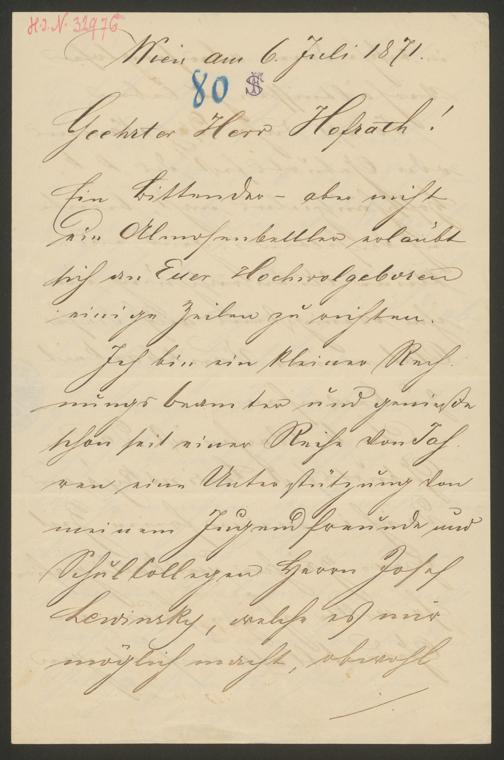 H.I.N. 32976
Wien am 6. Juli 1871.
80
Geehrter Herr Hofrath!
Ein Bittender – aber nicht
ein Almosenbettler erlaubt
sich an Euer Hochwolgeboren
einige Zeilen zu richten.
Ich bin ein kleiner Rech-
nungsbeamter und genieße
schon seit einer Reihe von Jah-
ren eine Unterstützung von
meinem Jugendfreunde und
Schulkollegen Herrn Josef
Lewinsky, welche es mir
möglich macht, obwohl